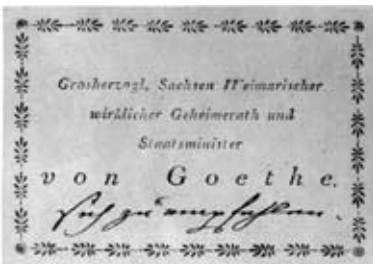 Grosherzogl. Sachsen Weimarischer
wirklicher Geheimerath und
Staatsminister
von Goethe.
sich zu empfehlen.